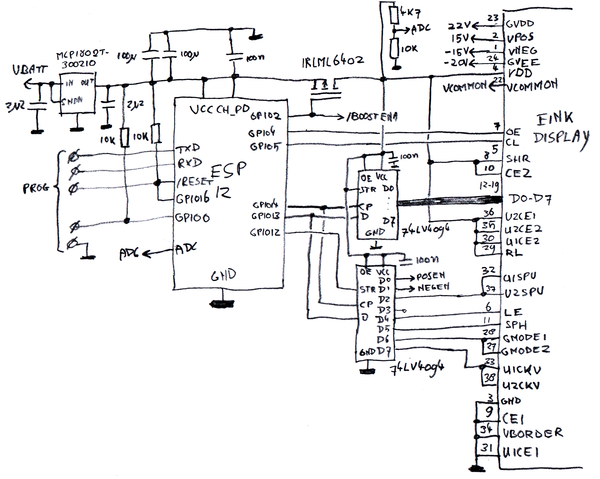 MCP1802T-
300210
VBATT
IN OUT
SHDN
2μ2
2μ2
100μ
100μ
100n
IRLML6402
4K7
ADC
10K
22V
15V
-15V
-20V
VCOMMON
23 GVDD
2 VPOS
1 VNEG
24 GVEE
4 VDD
22 VCOMMON
EINK
DISPLAY
10K
10K
VCC CH_PD
ESP
12
GND
TXD
RXD
/RESET
GPIO16
GPIO0
ADC
PROG
ADC
GPIO2
/BOOSTENA
GPIO4
GPIO5
GPIO13
GPIO12
7 OE
CL
5 SHR
8
10 CE2
12-19
D0-D7
36 U2CE1
35 U2CE2
30 U1CE2
29 RL
32 U1SPU
37 U2SPU
6 LE
11 SPH
28 GMODE1
27 GMODE2
33 U1CKV
38 U2CKV
3 GND
9 CE1
34 VBORDER
31 U1CE1
100n
OE VCC
STR D0
CP
D D7
GND
74LV4094
100n
OE VCC
D0
STR D1
D2
CP D3
D D4
D5
D6
GND D7
POSEN
NEGEN
74LV4094